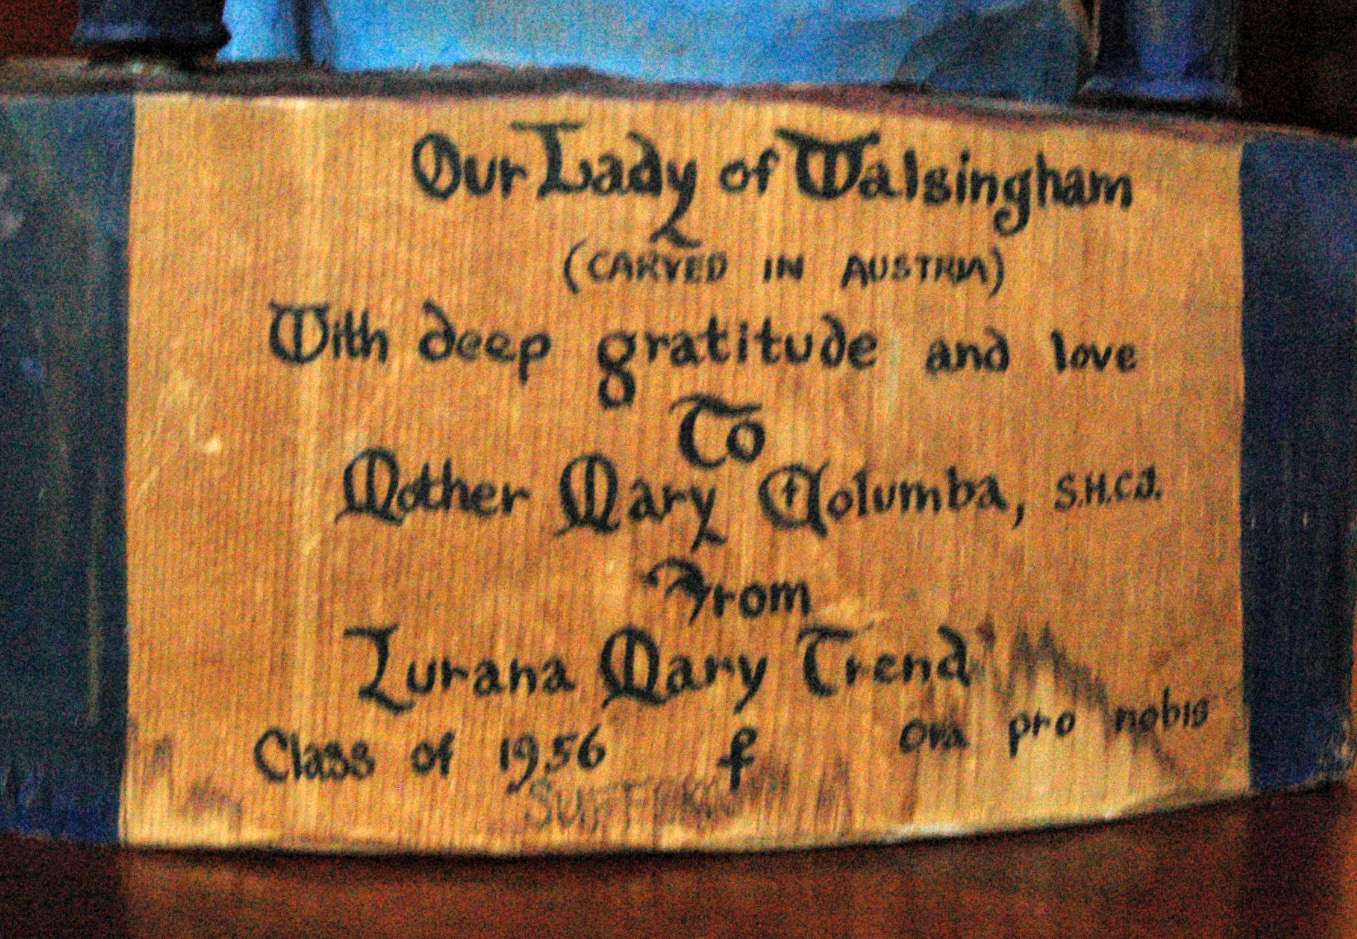 Our Lady of Walsingham
(CARVED IN AUSTRIA)
With deep gratitude and love
To
Mother Mary Columba, S.H.C.J.
From
Lurana Mary Trend
Class of 1956 f ora pro nobis